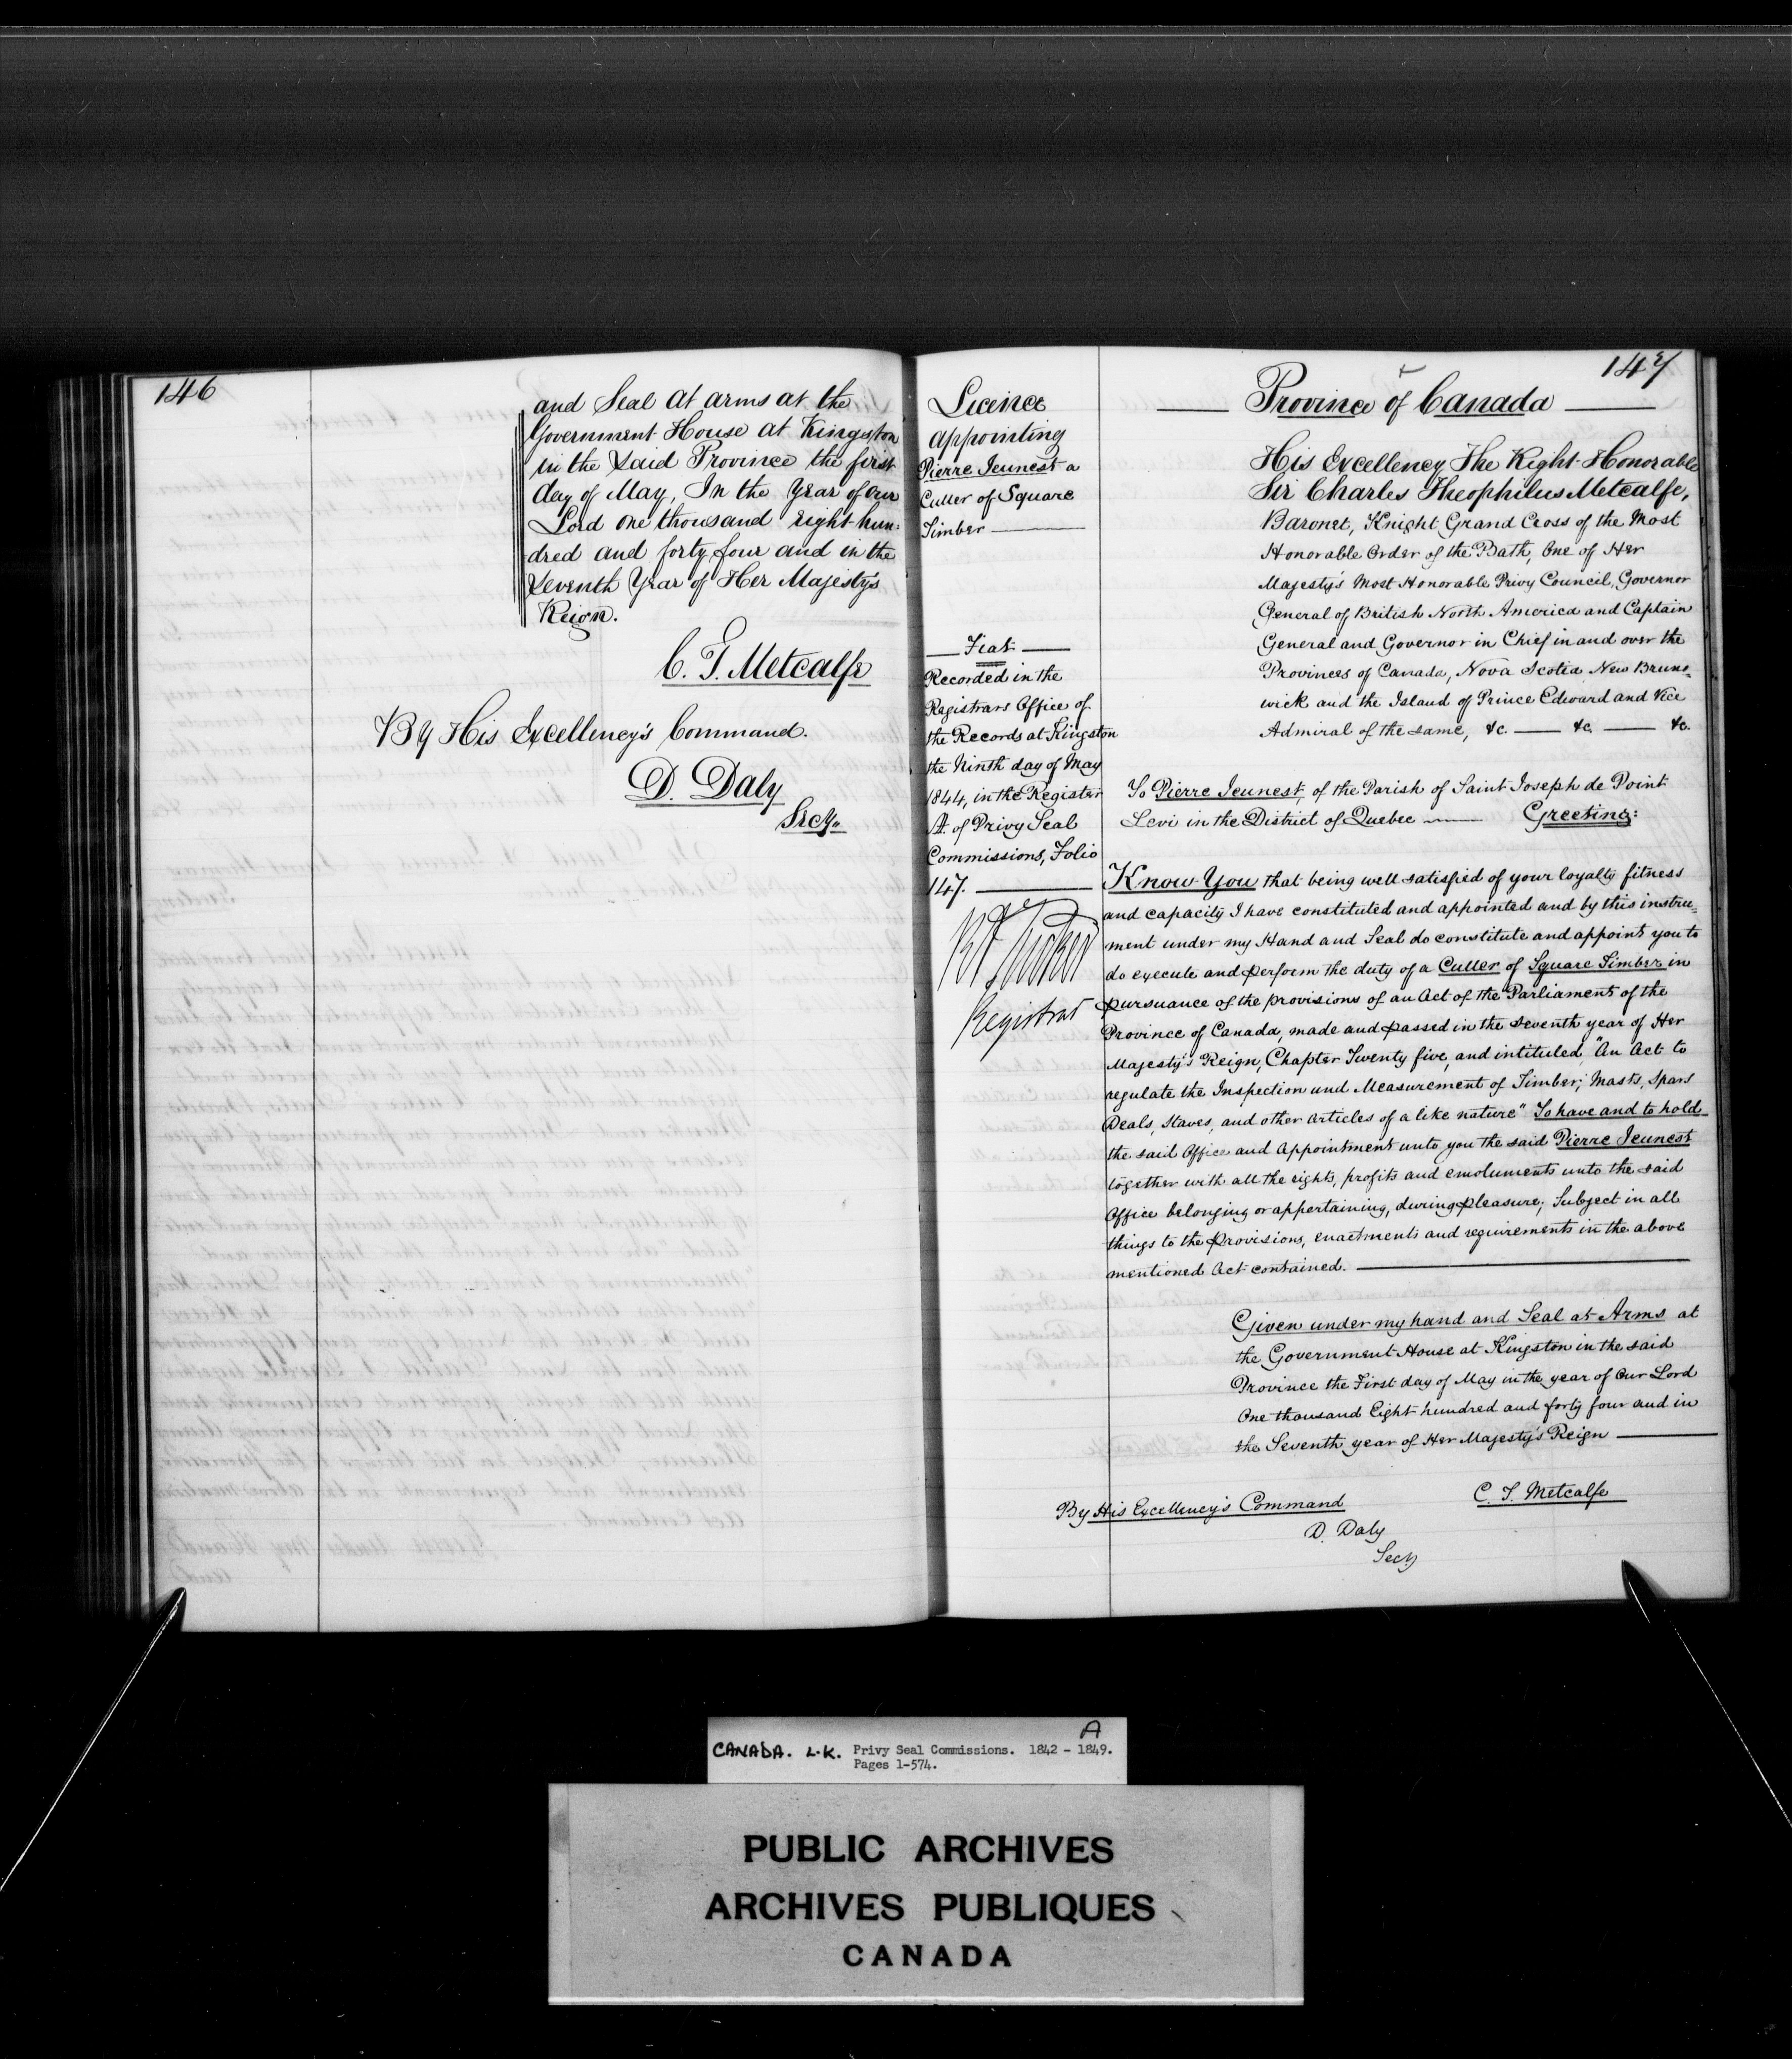 146
and Seal at arms at the
Government House at Kingston
in the said Province the first
day of May, In the Year of our
Lord one thousand eight hun=
dred and forty four and in the
Seventh Year of Her Majesty's
Reign.
C. T. Metcalfe
By His Excellency's Command.
D. Daly
Secy.
147
Licence
appointing
Pierre Jeunest a
Culler of Square
Timber
Fiat
Recorded in the
Registrars Office of
the Records at Kingston
the Ninth day of May
1844, in the Register
A. of Privy Seal
Commissions, Folio
147.
Registrar
Province of Canada
His Excellency The Right Honorable
Sir Charles Theophilus Metcalfe,
Baronet, Knight Grand Cross of the Most
Honorable Order of the Bath, One of Her
Majesty's Most Honorable Privy Council, Governor
General of British North America and Captain
General and Governor in Chief in and over the
Provinces of Canada, Nova Scotia New Bruns=
wick and the Island of Prince Edward and Vice
Admiral of the same, &c. — &c. — &c.
To Pierre Jeunest, of the Parish of Saint Joseph de Point
Levi in the District of Quebec — Greeting:
Know You that being well satisfied of your loyalty fitness
and capacity I have constituted and appointed and by this instru=
ment under my Hand and Seal do constitute and appoint you to
do execute and perform the duty of a Culler of Square Timber in
pursuance of the provisions of an Act of the Parliament of the
Province of Canada, made and passed in the seventh year of Her
Majesty's Reign, Chapter Twenty five, and intituled "An Act to
regulate the Inspection and Measurement of Timber, Masts, Spars
Deals, Staves, and other articles of a like nature" To have and to hold
the said Office and Appointment unto you the said Pierre Jeunest
together with all the rights, profits and emoluments unto the said
Office belonging or appertaining, during pleasure; Subject in all
things to the Provisions, enactments and requirements in the above
mentioned Act contained.
Given under my hand and Seal at Arms at
the Government House at Kingston in the said
Province the First day of May in the year of Our Lord
One thousand Eight hundred and forty four and in
the Seventh year of Her Majesty's Reign
C. T. Metcalfe
By His Excellency's Command
D. Daly
Secy
A
CANADA. L.K. Privy Seal Commissions. 1842 - 1849.
Pages 1-574.
PUBLIC ARCHIVES
ARCHIVES PUBLIQUES
CANADA